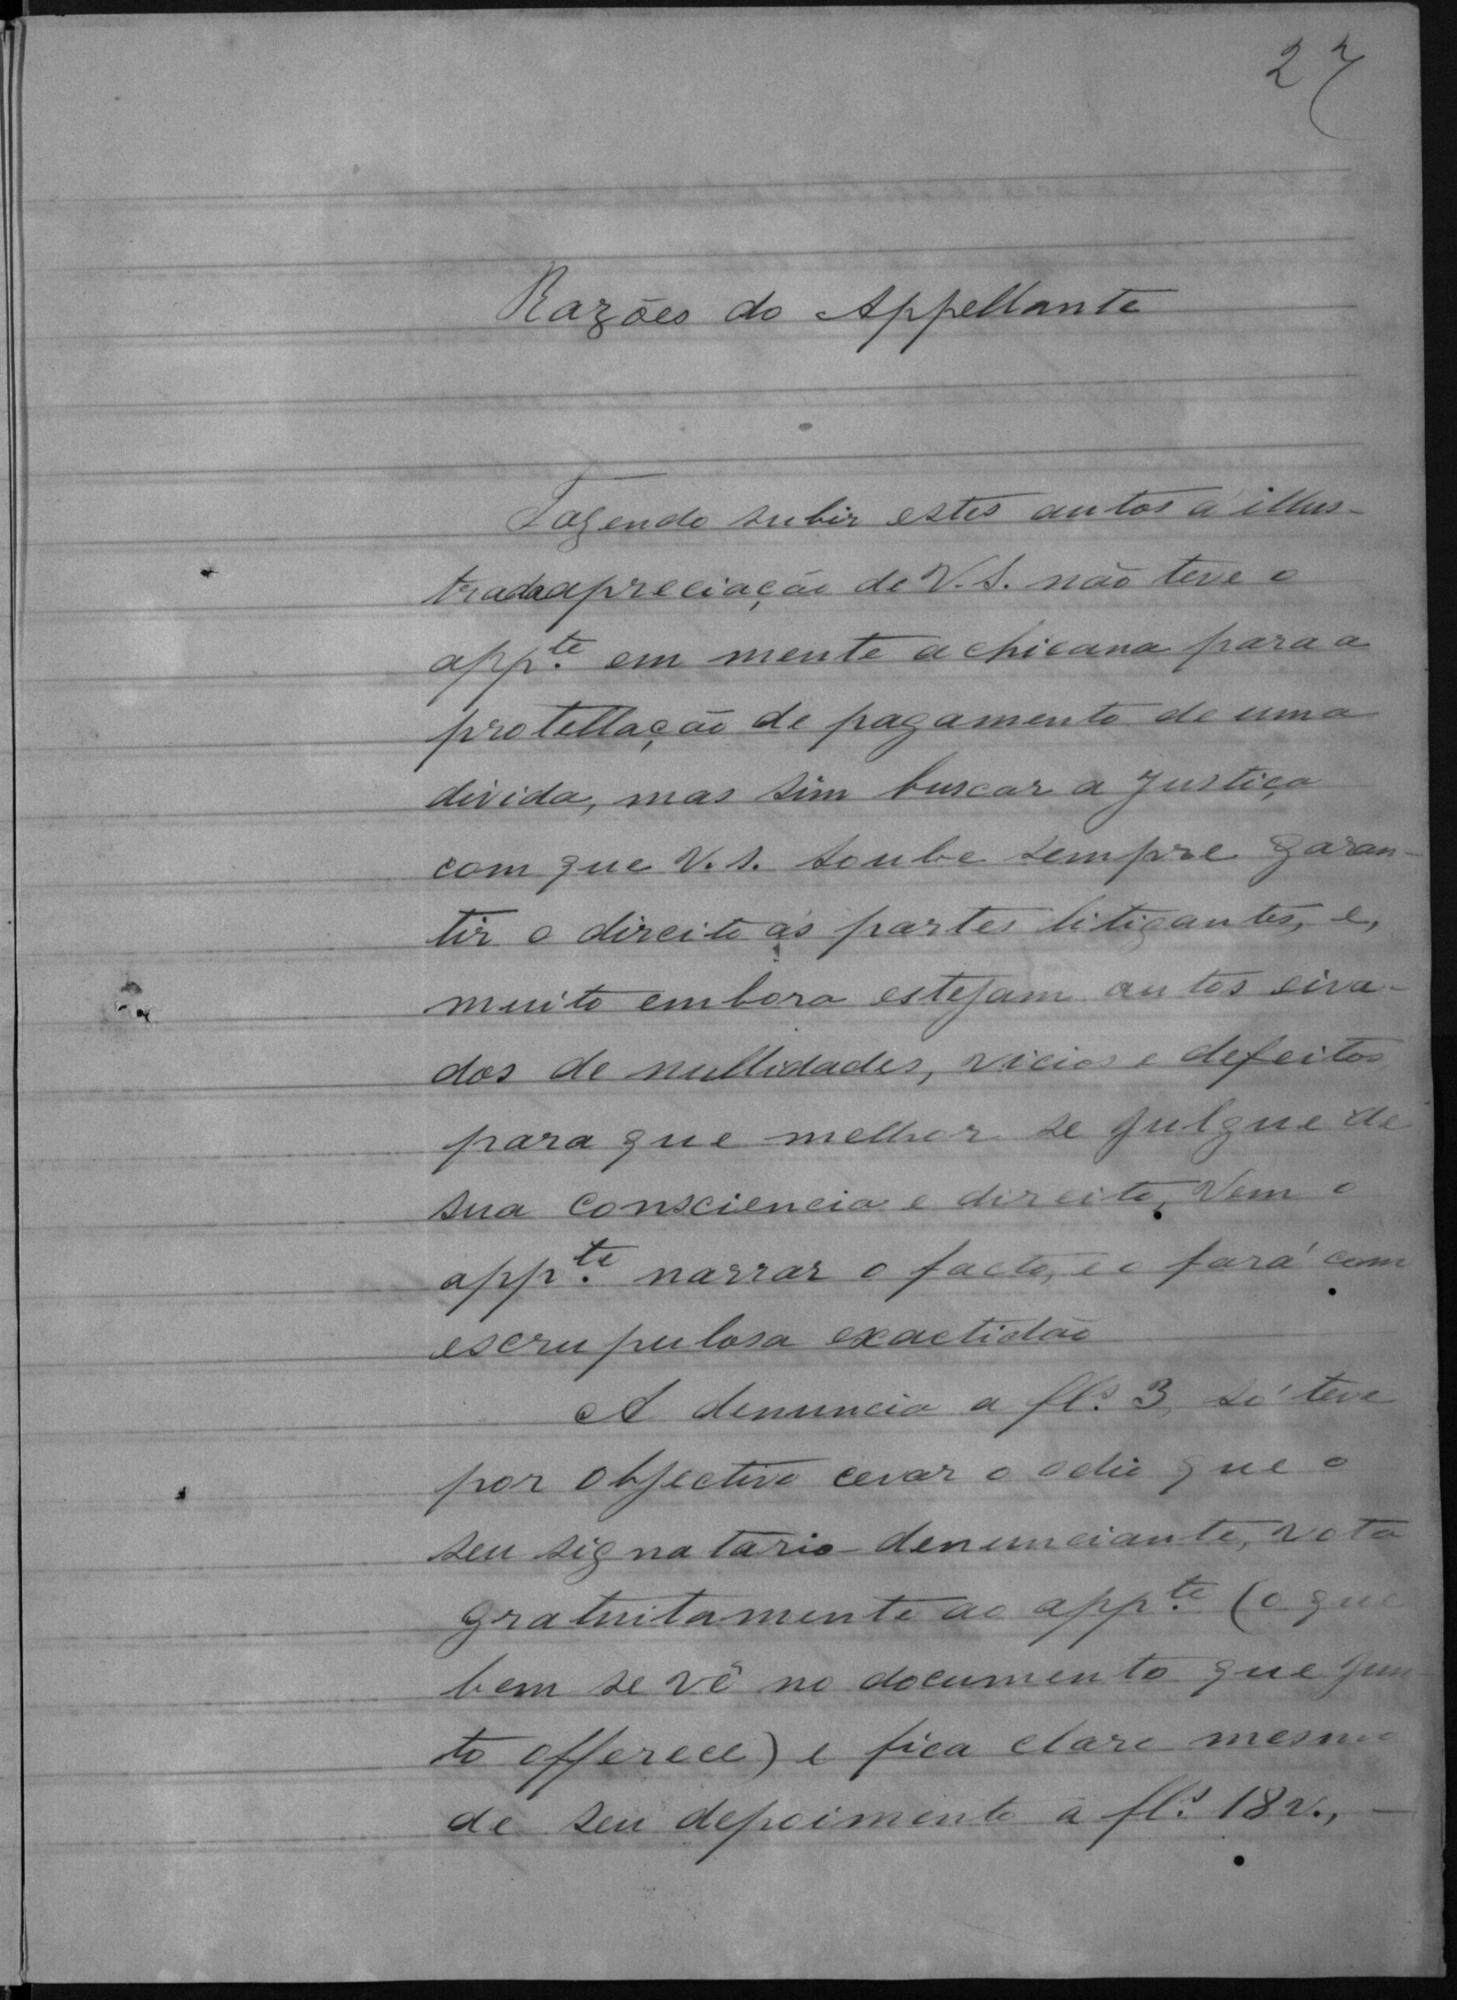 27
Razões do Appellante
Fazendo subir estes autos á illus-
trada apreciação de V.S. não teve o
app.te em mente a chicana para a
protellação de pagamento de uma
divida, mas sim buscar a justiça
com que V.S. soube sempre garan-
tir o direito ás partes litigantes, e,
muito embora estejam autos eiva-
dos de nullidades, vicios e defeitos
para que melhor se julgue de
sua consciencia e direito, vem o
app.te narrar o facto, e o fará com
escrupulosa exactidão
A denuncia a fl.s 3, só teve
por objectivo cevar o odio que o
seu signatario denunciante, vota
gratuitamente ao app.te (o que
bem se vê no documento que jun-
to offerece) e fica claro mesmo
de seu depoimento a fl.s 18v., -